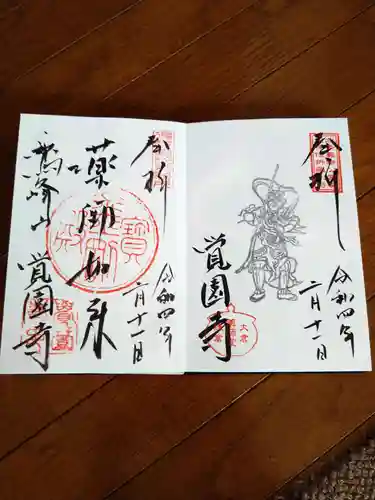 奉拝
令和四年
二月十一日
覚園寺
大倉
奉拝
令和四年
二月十一日
薬師如来
鷲峰山 覚園寺